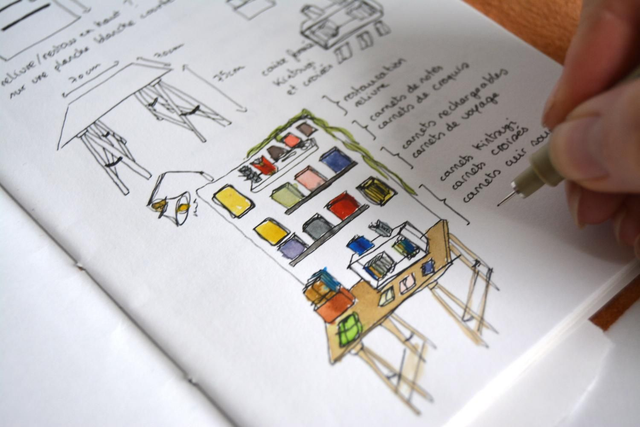 relivre/restau en haut ?
sur une planche blanche
70cm
70cm
75cm
caisse
Kintsugi
et croisés
restauration
relivre
carnets de notes
carnets de croquis
carnets rechargeables
carnets de voyage
carnets Kintsugi
carnets croisés
carnets cuir